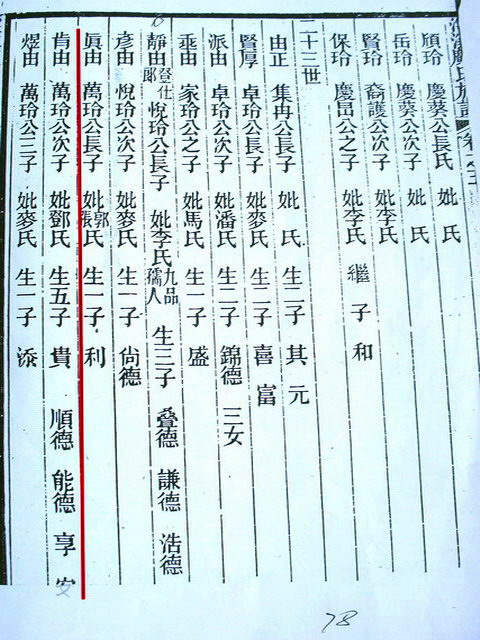 頎玲 慶葵公長氏 妣 氏
岳玲 慶葵公次子 妣 氏
賢玲 裔護公次子 妣李氏
保玲 慶昂公之子 妣李氏 繼 子 和
二十三世
由正 集冉公長子 妣 氏 生二子 其 元
賢厚 卓玲公長子 妣麥氏 生二子 喜 富
派由 卓玲公次子 妣潘氏 生二子 錦德 三女
乖由 家玲公之子 妣馬氏 生一子 盛
靜由 登仕郎 悅玲公長子 妣李氏 九品孺人 生三子 叠德 謙德 浩德
彥由 悅玲公次子 妣麥氏 生一子 尙德
眞由 萬玲公長子 妣郭張氏 生一子 利
肯由 萬玲公次子 妣鄧氏 生五子 貴 順德 能德 享 安
煜由 萬玲公三子 妣麥氏 生一子 添
78